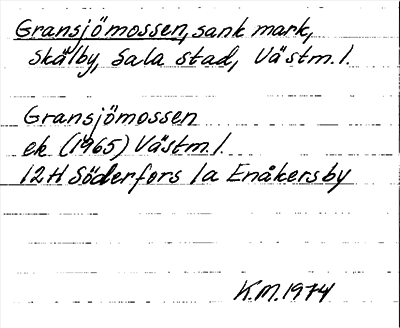 Gransjömossen, sank mark,
Skälby, Sala stad, Västm.l.
Gransjömossen
ek (1965) Västm.l.
12H Söderfors 1a Enåkersby
K.M.1974